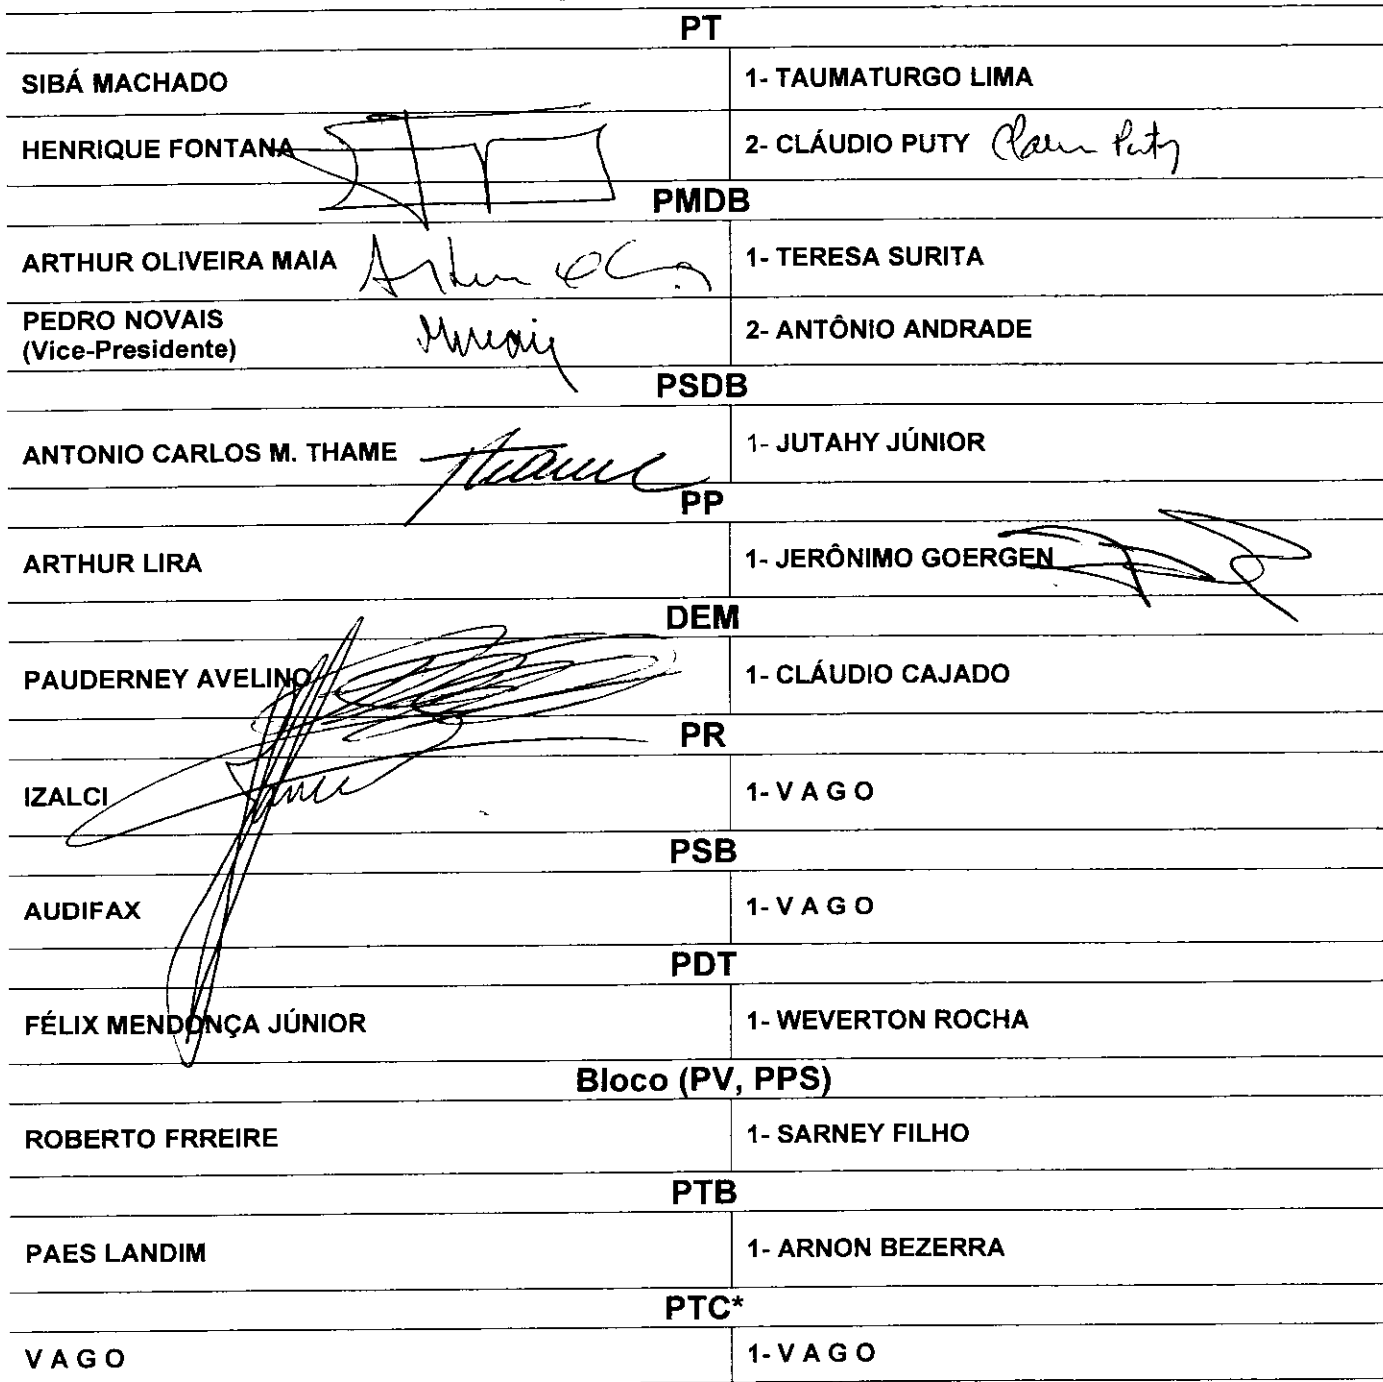 PT
SIBÁ MACHADO 1- TAUMATURGO LIMA
HENRIQUE FONTANA 2- CLÁUDIO PUTY
PMDB
ARTHUR OLIVEIRA MAIA 1- TERESA SURITA
PEDRO NOVAIS
(Vice-Presidente) 2- ANTÔNIO ANDRADE
PSDB
ANTONIO CARLOS M. THAME Thame 1- JUTAHY JÚNIOR
PP
ARTHUR LIRA 1- JERÔNIMO GOERGEN
DEM
PAUDERNEY AVELINO 1- CLÁUDIO CAJADO
PR
IZALCI 1- V A G O
PSB
AUDIFAX 1- V A G O
PDT
FÉLIX MENDONÇA JÚNIOR 1- WEVERTON ROCHA
Bloco (PV, PPS)
ROBERTO FRREIRE 1- SARNEY FILHO
PTB
PAES LANDIM 1- ARNON BEZERRA
PTC*
V A G O 1- V A G O